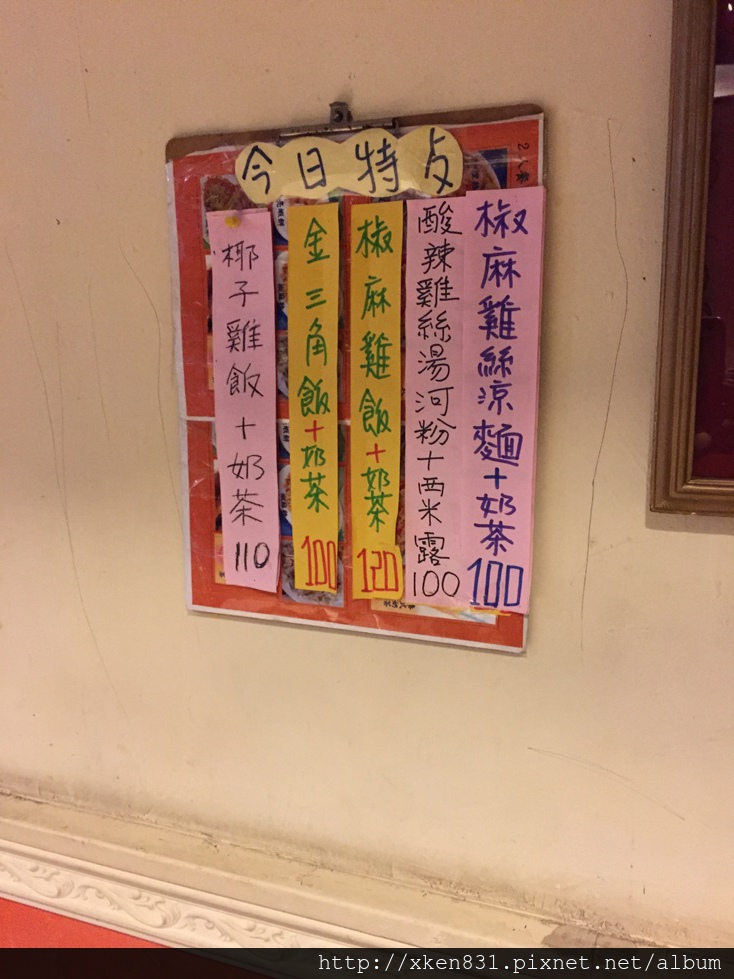 今日特点
椒麻雞絲涼麵+奶茶100
酸辣雞絲湯河粉+西米露100
椒麻雞飯+奶茶120
金三角飯+奶茶100
椰子雞飯+奶茶110
http://xken831.pixnet.net/album